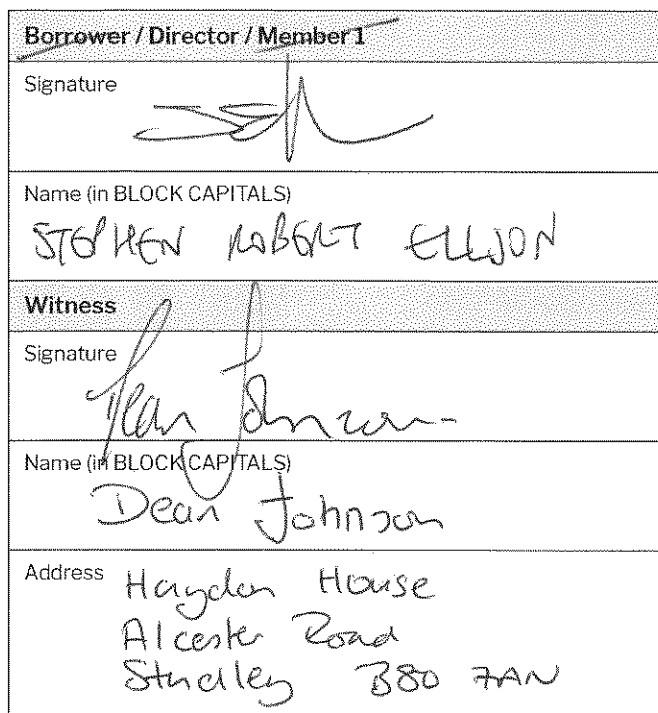 Borrower / Director / Member 1
Signature
Name (in BLOCK CAPITALS)
STEPHEN ROBERT ELLSON
Witness
Signature
Dean Johnson
Name (in BLOCK CAPITALS)
Dean Johnson
Address Haydon House
Alcester Road
Studley B80 7AN